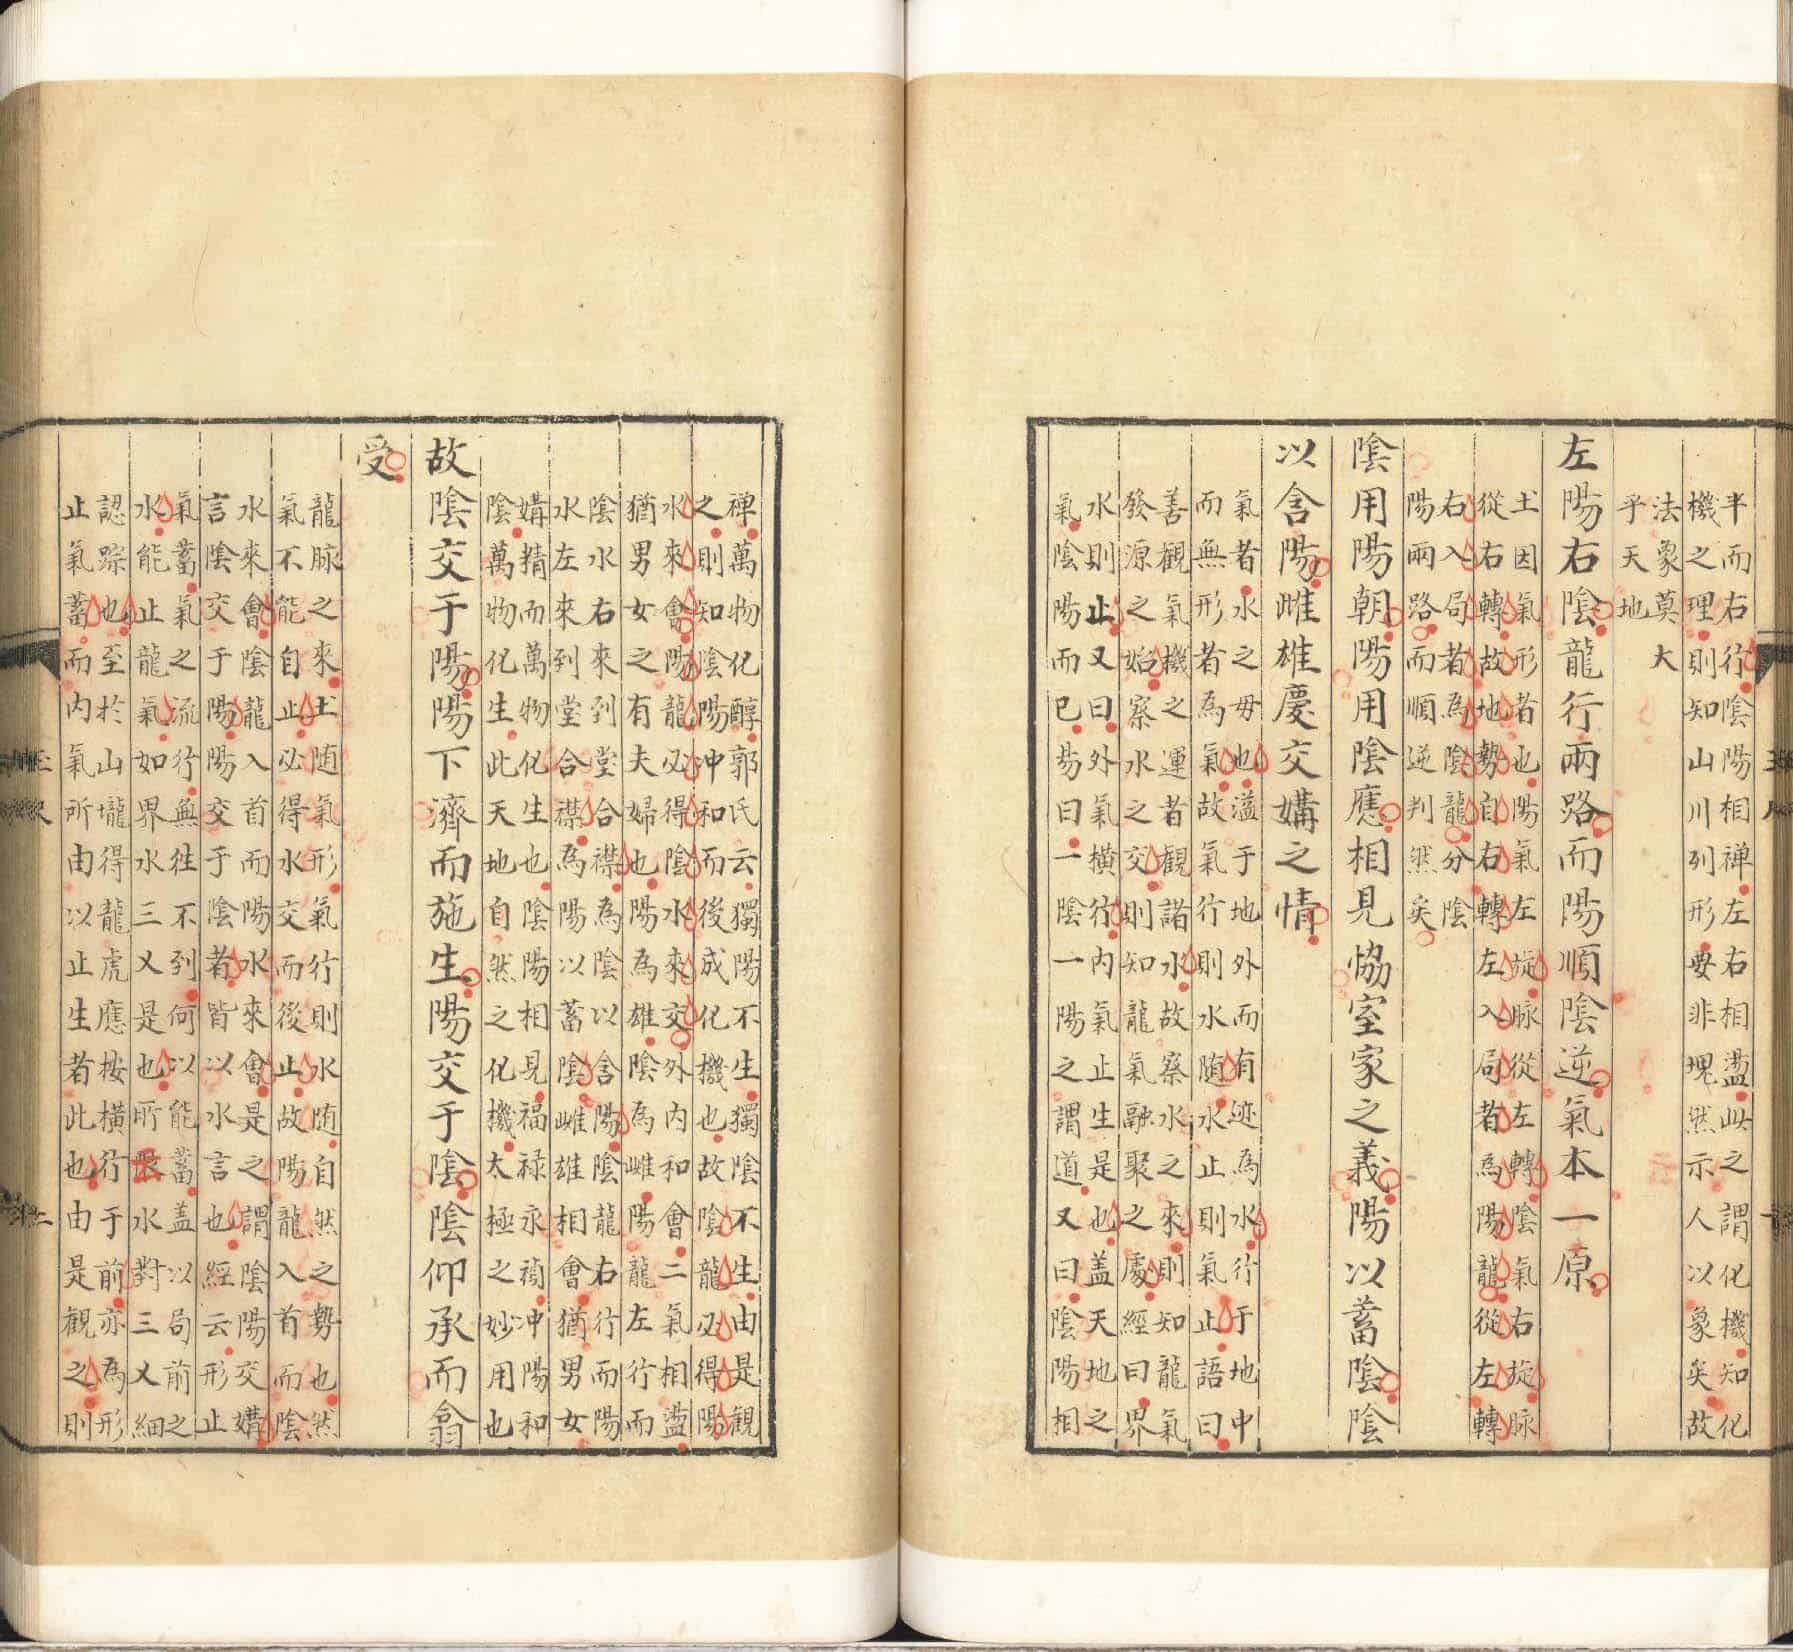 半而右行陰陽相禅左右相盪此之謂化機知化
機之理則知山川列形要非塊然示人以象矣故
法象莫大
乎天地
左陽右陰龍行兩路而陽順陰逆氣本一原
土因氣形者也陽氣左旋脉從左轉陰氣右旋脉
從右轉故地勢自右轉左入局者為陽龍從左轉
右入局者為陰龍分陰
陽兩路而順逆判然矣
陰用陽朝陽用陰應相見恊室家之義陽以蓄陰陰
以含陽雌雄慶交媾之情
氣者水之毋也溢于地外而有迹為水行于地中
而無形者為氣故氣行則水随水止則氣止語曰
善觀氣機之運者觀諸水故察水之來則知龍氣
發源之始察水之交則知龍氣融聚之處經曰界
水則止又曰外氣横行内氣止生是也盖天地之
氣陰陽而已昜曰一陰一陽之謂道又曰陰陽相
禅萬物化醇郭氏云獨陽不生獨陰不生由是觀
之則知陰陽冲和而後成化機也故陰龍必得陽
水來會陽龍必得陰水來交外内和會二氣相盪
猶男女之有夫婦也陽為雄陰為雌陽龍左行而
陰水右來到堂合襟為陰以含陽陰龍右行而陽
水左來到堂合襟為陽以蓄陰雌雄相會猶男女
媾精而萬物化生也陰陽相見福禄永禎冲陽和
陰萬物化生此天地自然之化機太極之妙用也
故陰交于陽陽下濟而施生陽交于陰陰仰承而翕
受
龍脉之來土随氣形氣行則水随自然之勢也然
氣不能自止必得水交而後止故陽龍入首而陰
水來會陰龍入首而陽水來會是之謂陰陽交媾
言陰交于陽陽交于陰者皆以水言也經云形止
氣蓄氣之流行無徃不到何以能蓄盖以局前之
水能止龍氣如界水三乂是也所水對三乂細
認踪也至於山壠得龍虎應按横行于前亦為形
止氣蓄而内氣所由以止生者此也由是觀之則